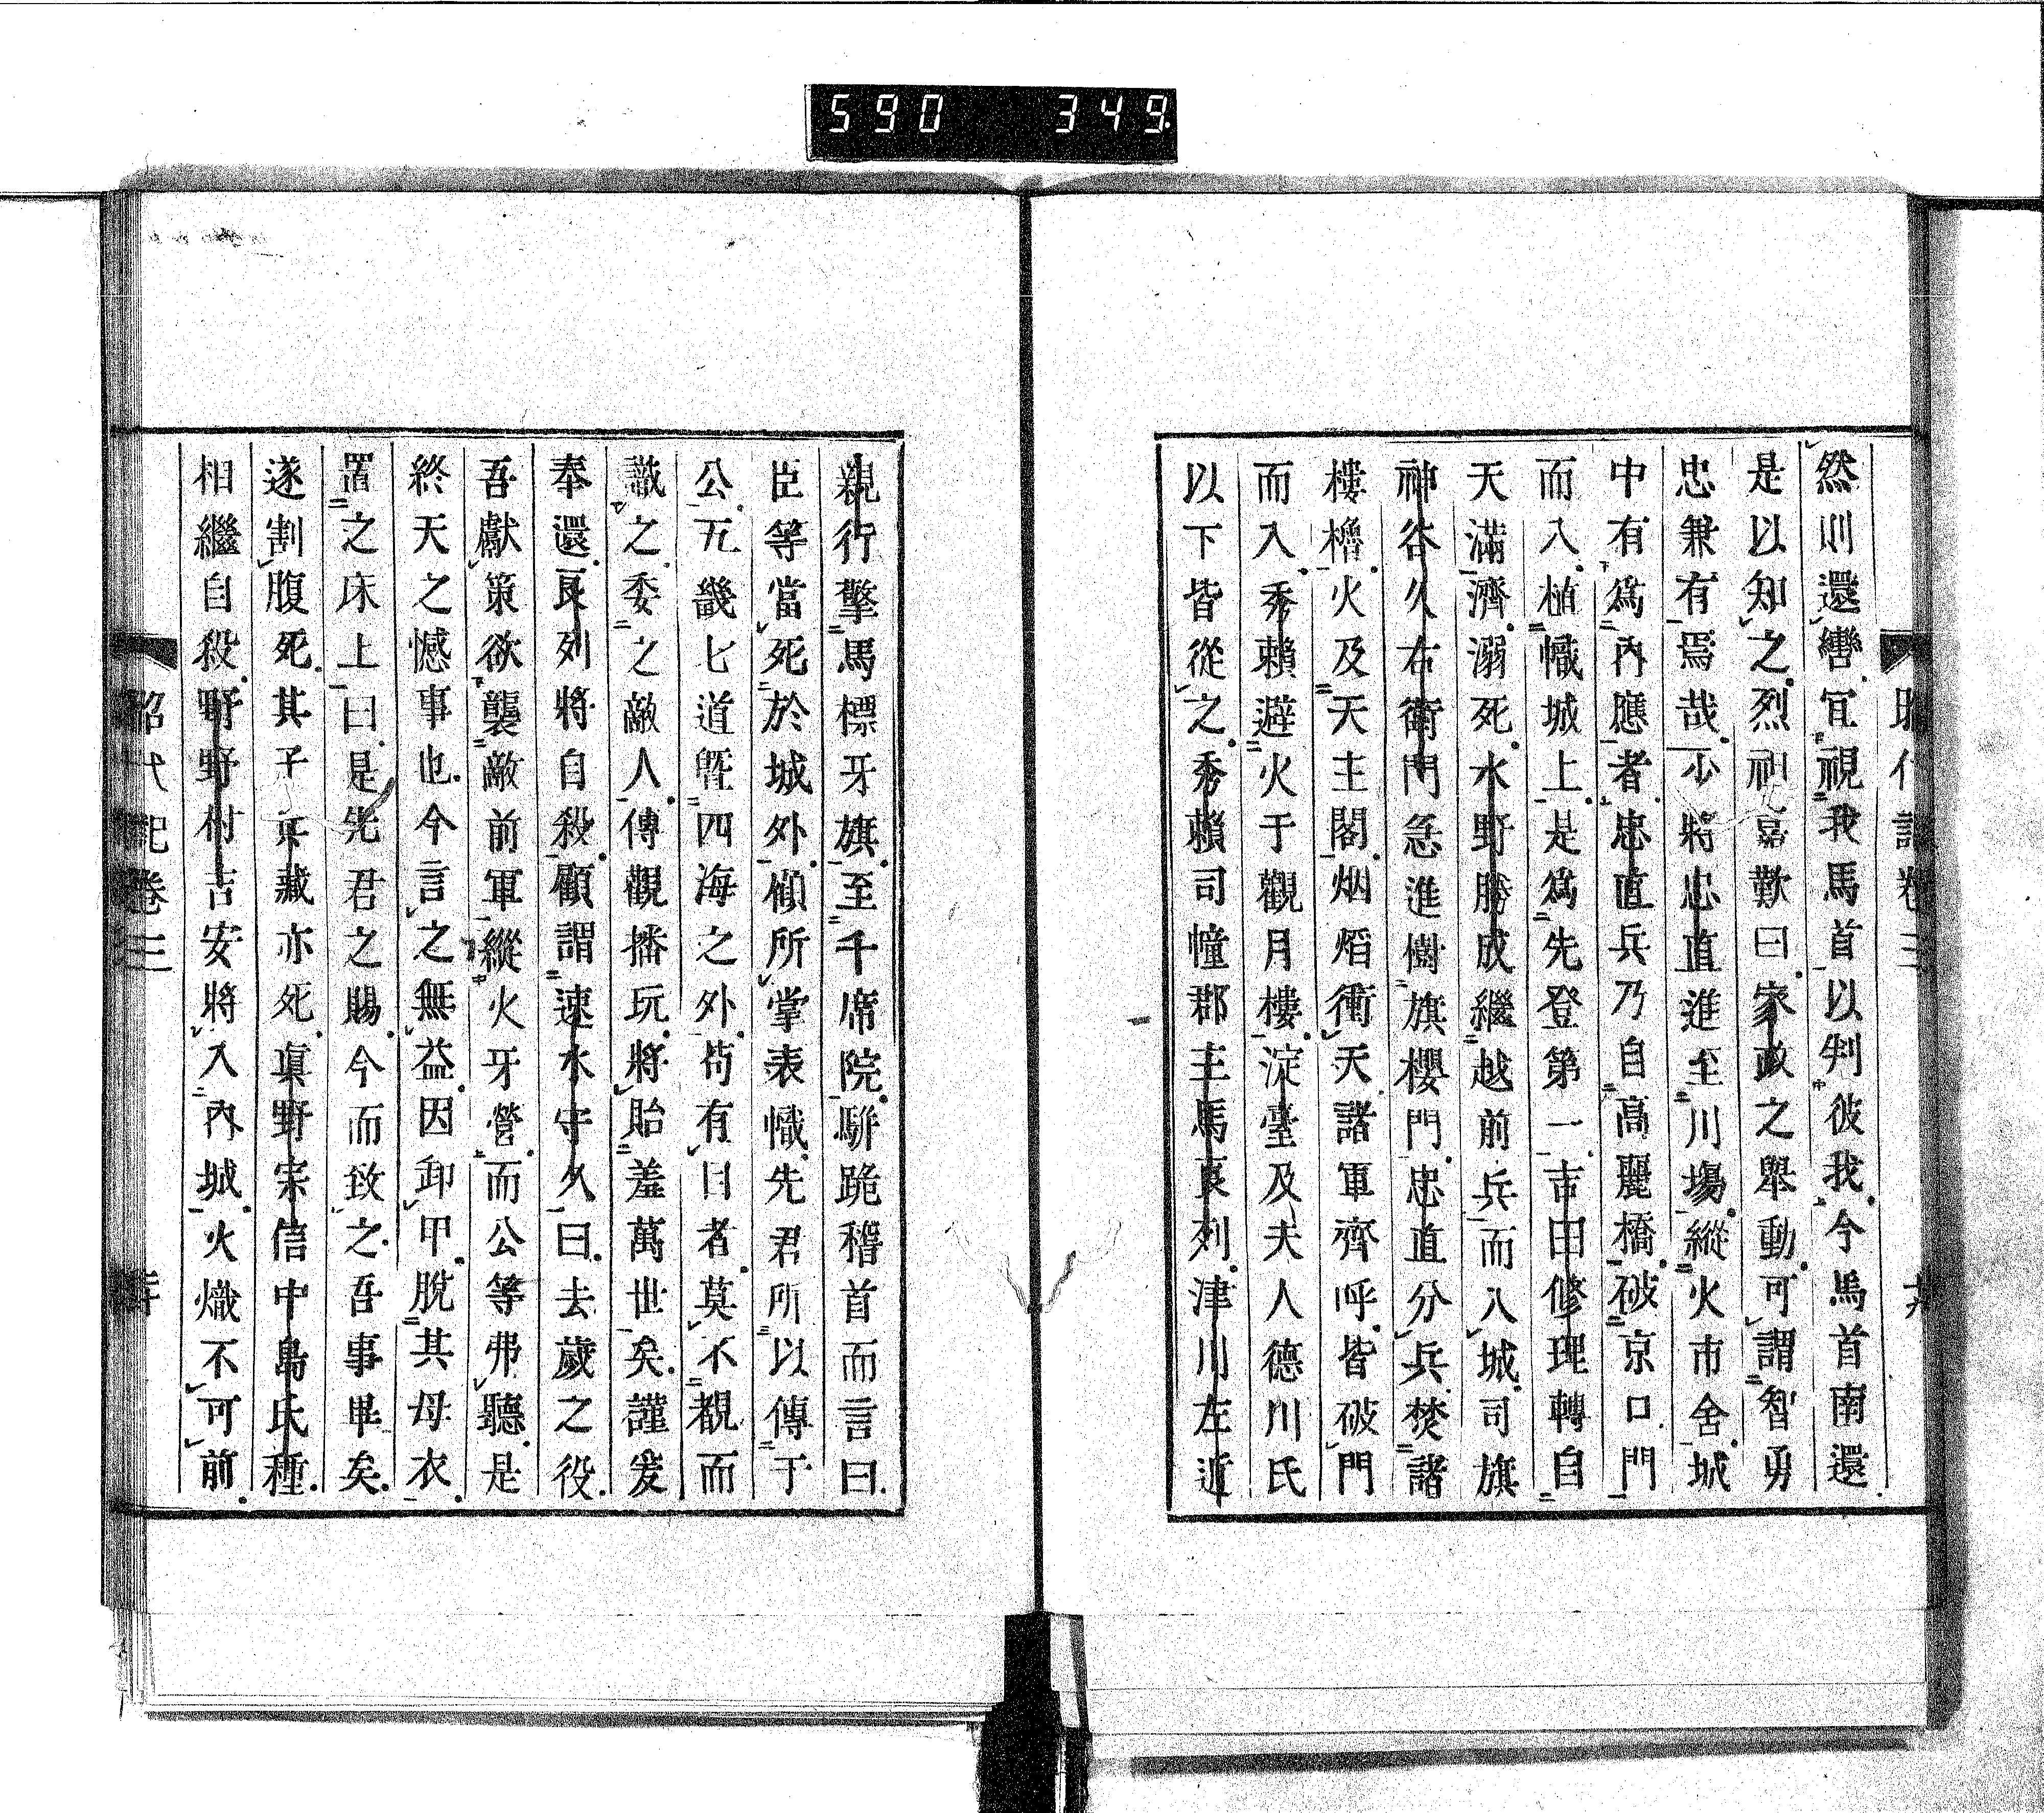 590 349
然則還轡宜視我馬首以判彼我今馬首南還
是以知之烈祖嘉歎曰家政之舉動可謂智勇
忠兼有焉哉少將忠直進至川場縱火市舍城
中有爲內應者忠直兵乃自高麗橋破京口門
而入植幟城上是爲先登第一吉田修理轉自
天滿濟溺死水野勝成繼越前兵而入城司旗
神谷久右衛門急進樹旗櫻門忠直分兵焚諸
樓櫓火及天主閣烟焰衝天諸軍齊呼皆破門
而入秀賴避火于觀月樓淀臺及夫人德川氏
以下皆從之秀賴司幢郡主馬良列津川左近
親行擎馬標牙旗至千席院駢跪稽首而言曰
臣等當死於城外顧所掌表幟先君所以傳于
公五畿七道曁四海之外苟有目者莫不覩而
識之委之敵人傳觀播玩將貽羞萬世矣謹爰
奉還良列將自殺顧謂速水守久曰去歲之役
吾獻策欲襲敵前軍縱火牙營而公等弗聽是
終天之憾事也今言之無益因卸甲脫其母衣
置之床上曰是先君之賜今而致之吾事畢矣
遂割腹死其子兵藏亦死眞野宗信中島氏種
相繼自殺野野村吉安將入內城火熾不可前
昭代記卷三